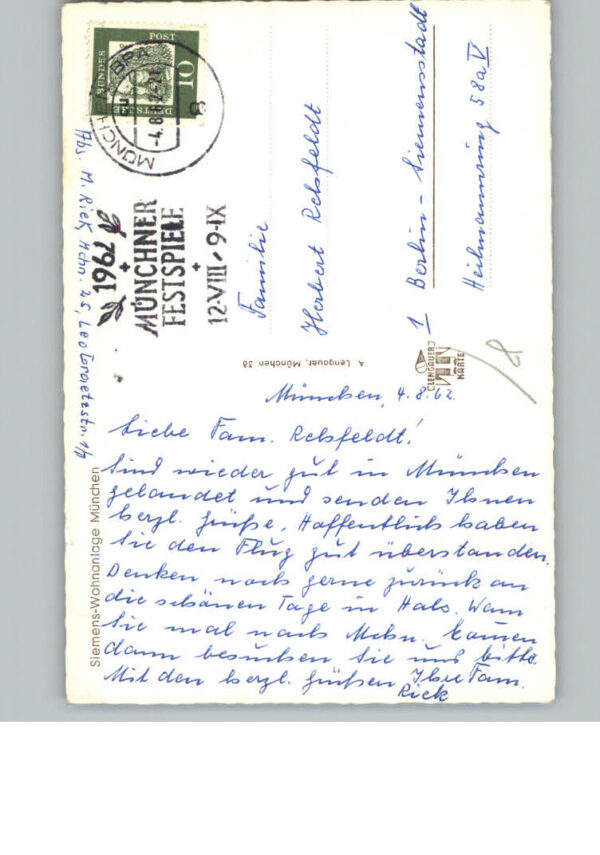 München, 4.8.62.
Liebe Fam. Relsfeldt!
Sind wieder gut in München
gelandet und senden Ihnen
herzl. Grüße. Hoffentlich haben
Sie den Flug gut überstanden.
Denken noch gerne zurück an
die schönen Tage in Hals. Wenn
Sie mal nach Mchn. kommen
dann besuchen Sie uns bitte.
Mit den herzl. Grüßen Ihre Fam.
Rick
Familie
Herbert Relsfeldt
1 Berlin - Siemensstadt
Heilmannring 58a IV
Abs. M. Rick, Mchn. 25,
Siemens-Wohnanlage München
A. Lengauer, München 38
C. LENGAUER
KARTE
DEUTSCHE
BUNDES
POST
10
MÜNCHEN BPA
-4.8.62-21
8
1962
+
MÜNCHNER
FESTSPIELE
+
12·VIII - 9·IX
8